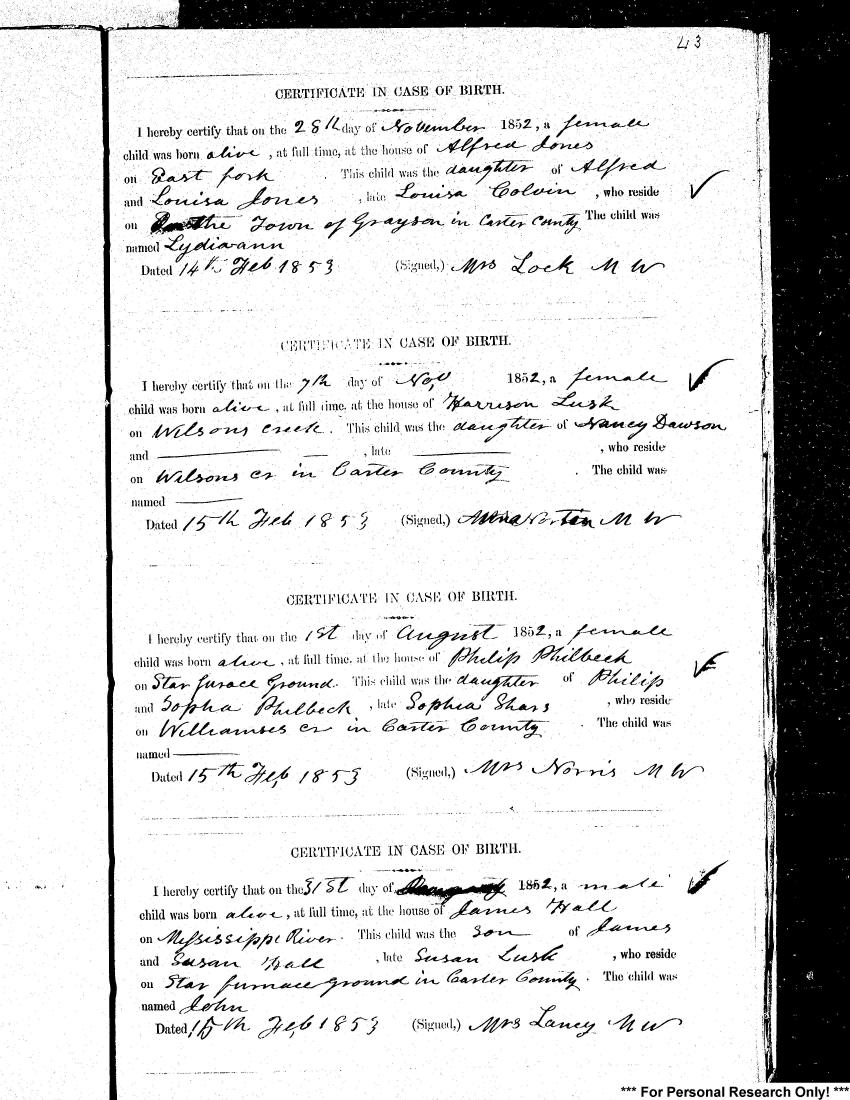 43
CERTIFICATE IN CASE OF BIRTH.
I hereby certify that on the 28th day of November 1852, a female
child was born alive, at full time, at the house of Alfred Jones
on East fork . This child was the daughter of Alfred
and Louisa Jones , late Louisa Colvin , who reside
on the Town of Grayson in Carter County The child was
named Lydiaann
Dated 14th Feb 1853 (Signed,) Mrs Lock M W
CERTIFICATE IN CASE OF BIRTH.
I hereby certify that on the 7th day of Nov 1852, a female
child was born alive, at full time, at the house of Harrison Lusk
on Wilsons creek. This child was the daughter of Nancy Dawson
and , late , who reside
on Wilsons cr in Carter County . The child was
named
Dated 15th Feb 1853 (Signed,) Norton M W
CERTIFICATE IN CASE OF BIRTH.
I hereby certify that on the 1st day of August 1852, a female
child was born alive, at full time, at the house of Philip Philbeck
on Star furace Ground. This child was the daughter of Philip
and Sopha Philbeck , late Sophia Shars , who reside
on Williamses cr in Carter County . The child was
named
Dated 15th Feb, 1853 (Signed,) Mrs Norris M W
CERTIFICATE IN CASE OF BIRTH.
I hereby certify that on the 31st day of 1852, a male
child was born alive, at full time, at the house of James Hall
on Mississippi River. This child was the son of James
and Susan Hall , late Susan Lusk , who reside
on Star furnace ground in Carter County. The child was
named John
Dated 15th Feb, 1853 (Signed,) Mrs Lancy M W
*** For Personal Research Only! ***